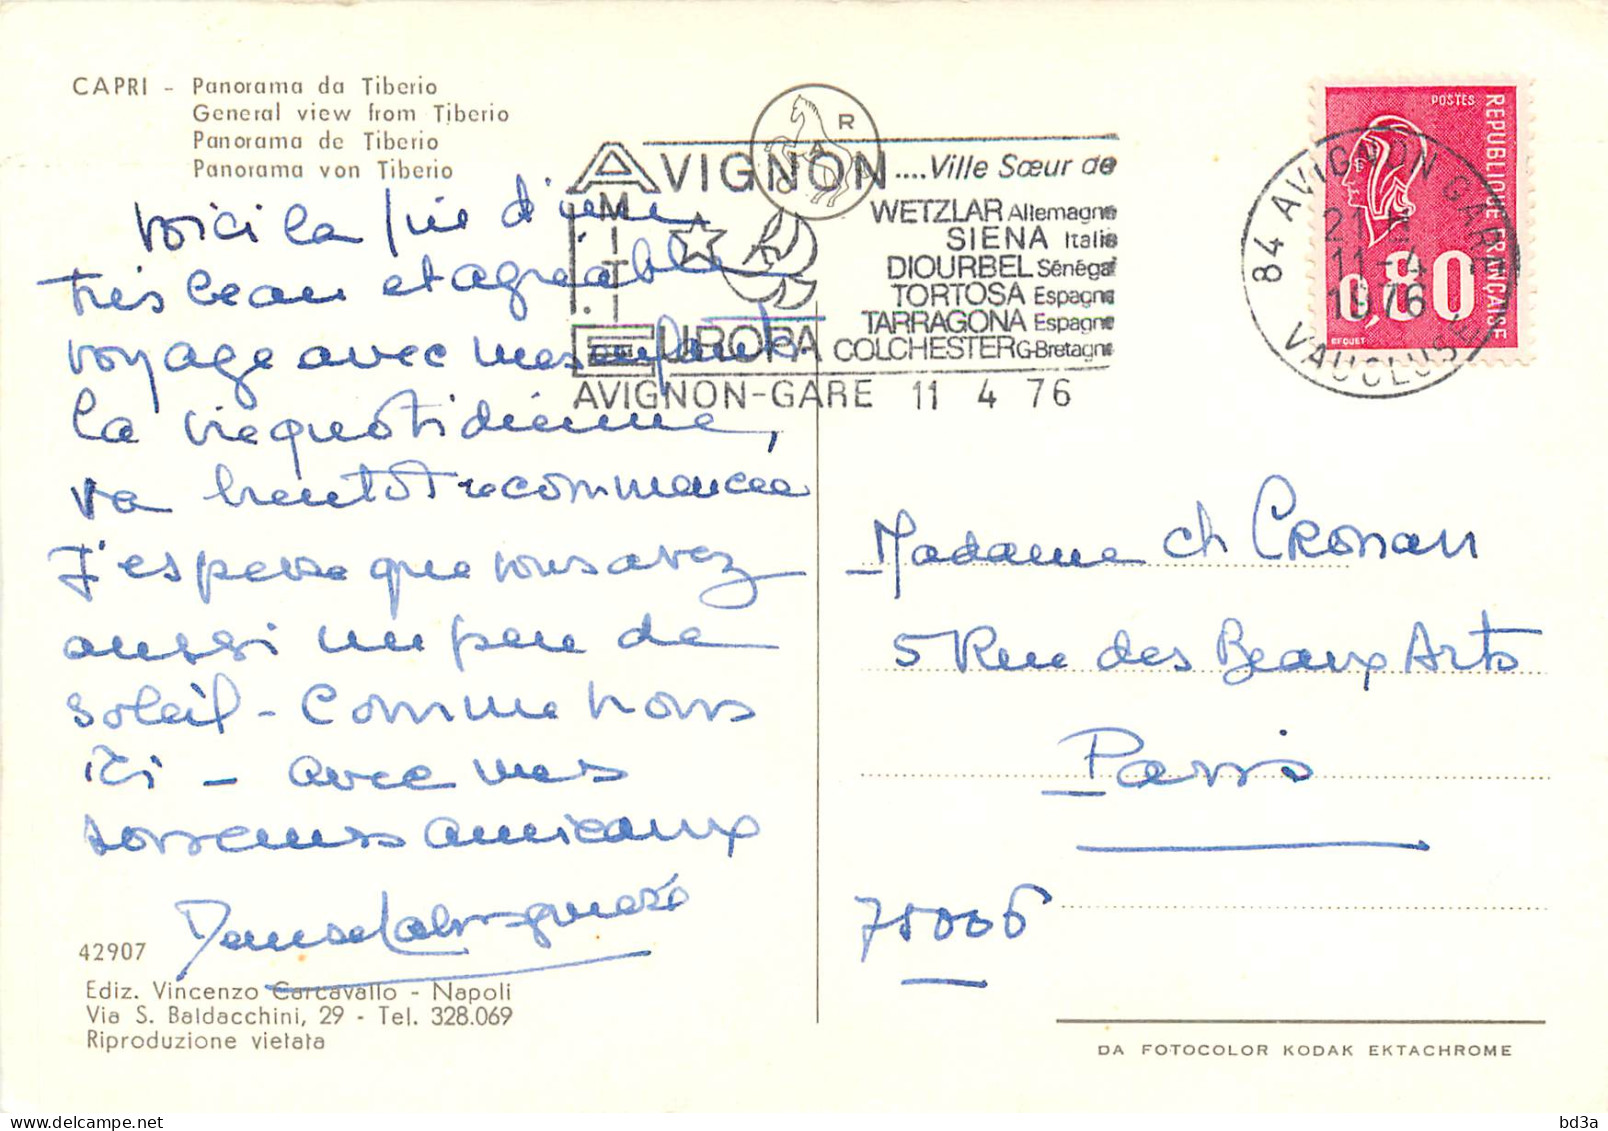 CAPRI - Panorama da Tiberio
General view from Tiberio
Panorama de Tiberio
Panorama von Tiberio
voici la fin d'une
très beau et agréable
voyage avec mes enfants.
la vie quotidienne,
va bientôt recommencée
J'espère que vous avez
aussi un peu de
soleil - Comme nous
ici - avec mes
souvenirs amicaux
42907
Ediz. Vincenzo Carcavallo - Napoli
Via S. Baldacchini, 29 - Tel. 328.069
Riproduzione vietata
R
A
AVIGNON ....Ville Sœur de
AMITIE
WETZLAR Allemagne
SIENA Italie
DIOURBEL Sénégal
TORTOSA Espagne
TARRAGONA Espagne
EUROPA COLCHESTER G-Bretagne
AVIGNON-GARE 11 4 76
POSTES
REPUBLIQUE FRANCAISE
0,80
BEQUET
84 AVIGNON GARE
21 H
11-4
1976
VAUCLUSE
Madame Ch Cronan
5 Rue des Beaux Arts
Paris
75006
DA FOTOCOLOR KODAK EKTACHROME
bd3a